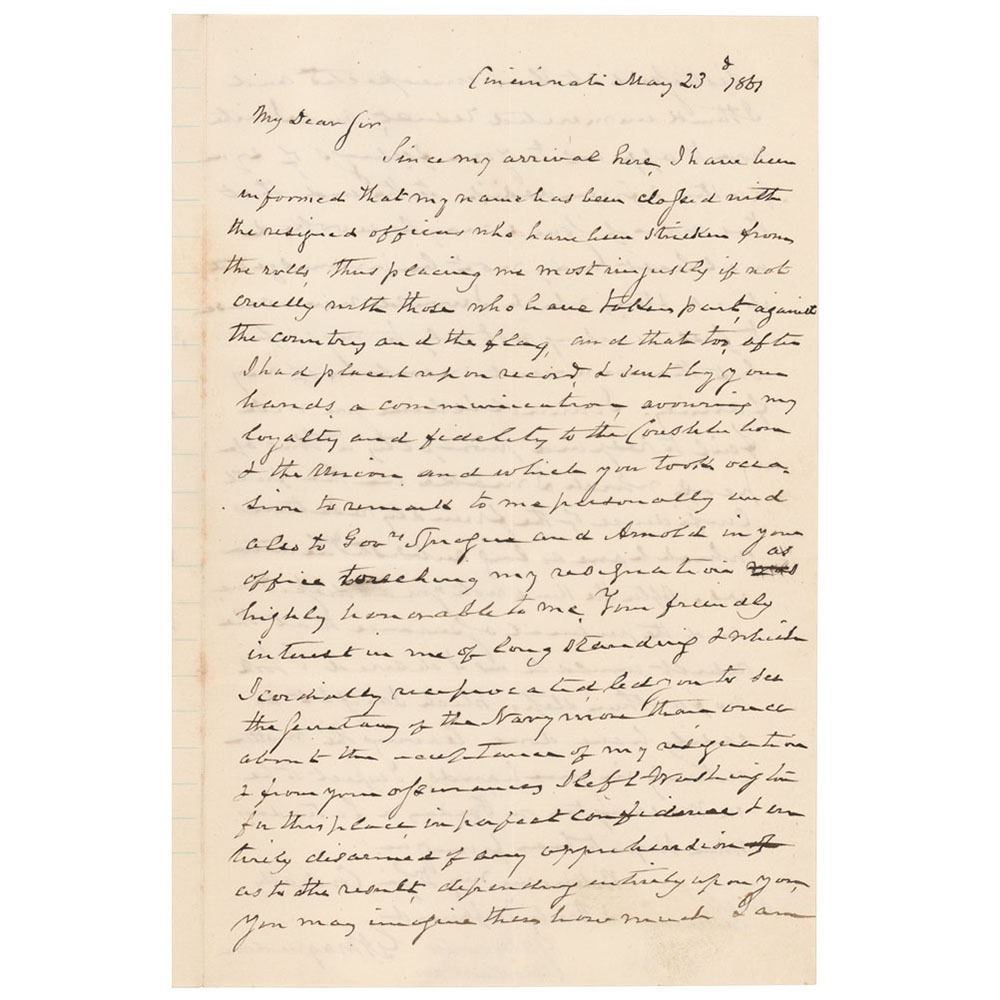 Cincinnati May 23d 1861
My Dear Sir
Since my arrival here, I have been
informed that my name has been classed with
the resigned officers who have been stricken from
the rolls, thus placing me most unjustly if not
cruelly with those who have taken part, against
the country and the flag, and that too, after
I had placed upon record, & sent by your
hands, a communication, avowing my
loyalty and fidelity to the Constitution
& the Union, and which you took occa-
sion to remark to me personally and
also to Govrs Sprague and Arnold in your
office touching my resignation as
highly honorable to me. Your friendly
interest in me of long standing & which
I cordially reciprocated, led you to see
the Secretary of the Navy more than once
about the acceptance of my resignation
& from your assurances, I left Washington
for this place, in perfect confidence & en
tirely disarmed of any apprehension of
as to the result, depending entirely upon you,
You may imagine then how much I am